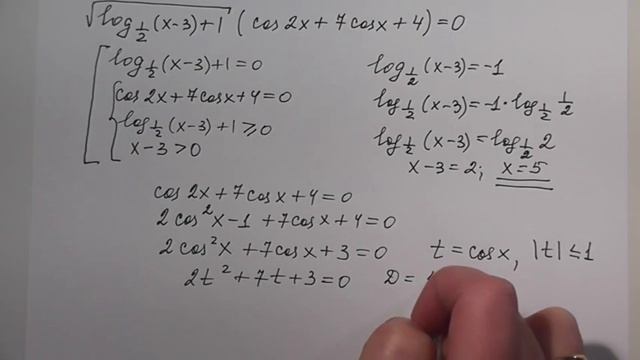 √(log_{1/2}(x-3)+1) (cos2x+7cosx+4)=0
log_{1/2}(x-3)+1=0
cos2x+7cosx+4=0
log_{1/2}(x-3)+1⩾0
x-3>0
log_{1/2}(x-3)=-1
log_{1/2}(x-3)=-1·log_{1/2} 1/2
log_{1/2}(x-3)=log_{1/2}2
x-3=2; x=5
cos2x+7cosx+4=0
2cos²x-1+7cosx+4=0
2cos²x+7cosx+3=0 t=cosx, |t|⩽1
2t²+7t+3=0 D=